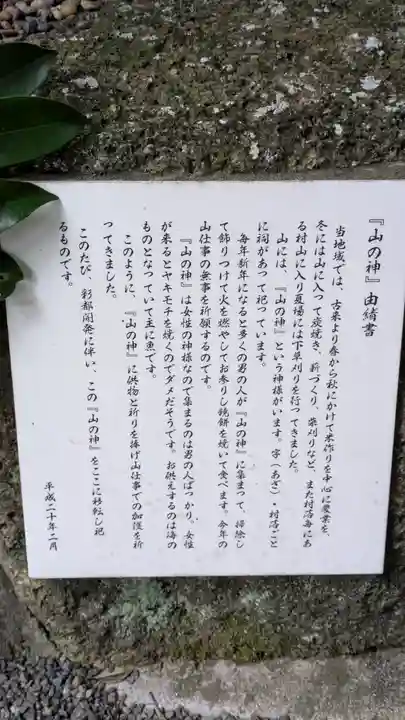 『山の神』由緒書
当地域では、古来より春から秋にかけて米作りを中心に農業を、
冬には山に入って炭焼き、薪づくり、柴刈りなど、また村落毎にあ
る村山に入り夏場には下草刈りを行ってきました。
山には、『山の神』という神様がいます。字(あざ)・村落ごと
に祠があって祀っています。
毎年新年になると多くの男の人が『山の神』に集まって、掃除し
て飾りつけて火を燃やしてお参りし鏡餅を焼いて食べます。今年の
山仕事の無事を祈願するのです。
『山の神』は女性の神様なので集まるのは男の人ばっかり。女性
が来るとヤキモチを焼くのでダメだそうです。お供えするのは海の
ものとなっていて主に魚です。
このように、『山の神』に供物と祈りを捧げ山仕事での加護を祈
ってきました。
このたび、彩都開発に伴い、この『山の神』をここに移転し祀
るものです。
平成二十年二月